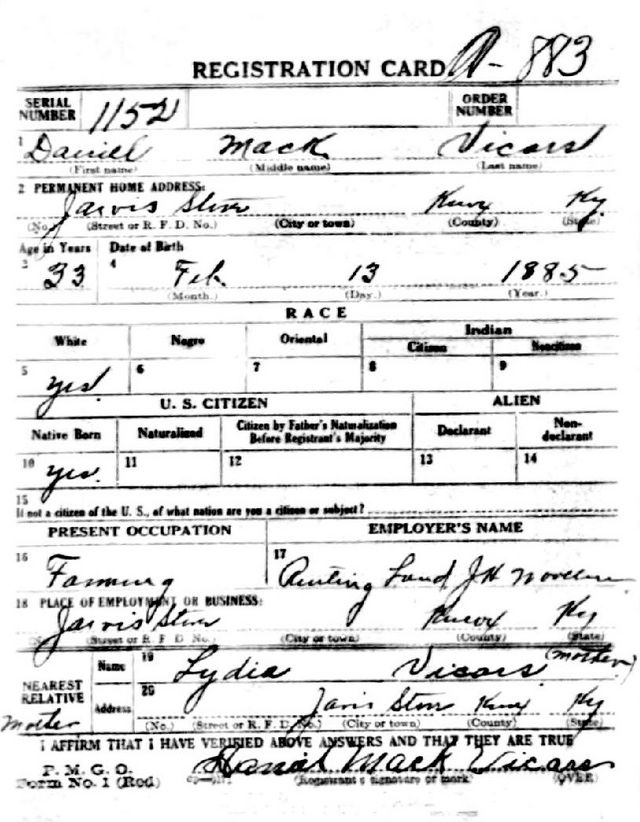 REGISTRATION CARD A-883
SERIAL NUMBER 1152 ORDER NUMBER
1 Daniel Mack Vicars
(First name) (Middle name) (Last name)
2 PERMANENT HOME ADDRESS:
Jarvis Store Knox Ky
(No.) (Street or R. F. D. No.) (City or town) (County) (State)
Age in Years Date of Birth
3 33 4 Feb. 13 1885
(Month.) (Day.) (Year.)
RACE
White Negro Oriental Indian
Citizen Noncitizen
5 yes 6 7 8 9
U. S. CITIZEN ALIEN
Native Born Naturalized Citizen by Father's Naturalization Before Registrant's Majority Declarant Non-declarant
10 yes. 11 12 13 14
15
If not a citizen of the U. S., of what nation are you a citizen or subject?
PRESENT OCCUPATION EMPLOYER'S NAME
16 Farming 17 Renting Land J H
18 PLACE OF EMPLOYMENT OR BUSINESS:
Jarvis Store Knox Ky
(No.) (Street or R. F. D. No.) (City or town) (County) (State)
NEAREST RELATIVE Name 19 Lydia Vicars (mother)
mother Address 20 Jarvis Store Knox Ky
(No.) (Street or R. F. D. No.) (City or town) (County) (State)
I AFFIRM THAT I HAVE VERIFIED ABOVE ANSWERS AND THAT THEY ARE TRUE
P. M. G. O.
Form No. 1 (Red) Daniel Mack Vicars
(Registrant's signature or mark) (OVER)